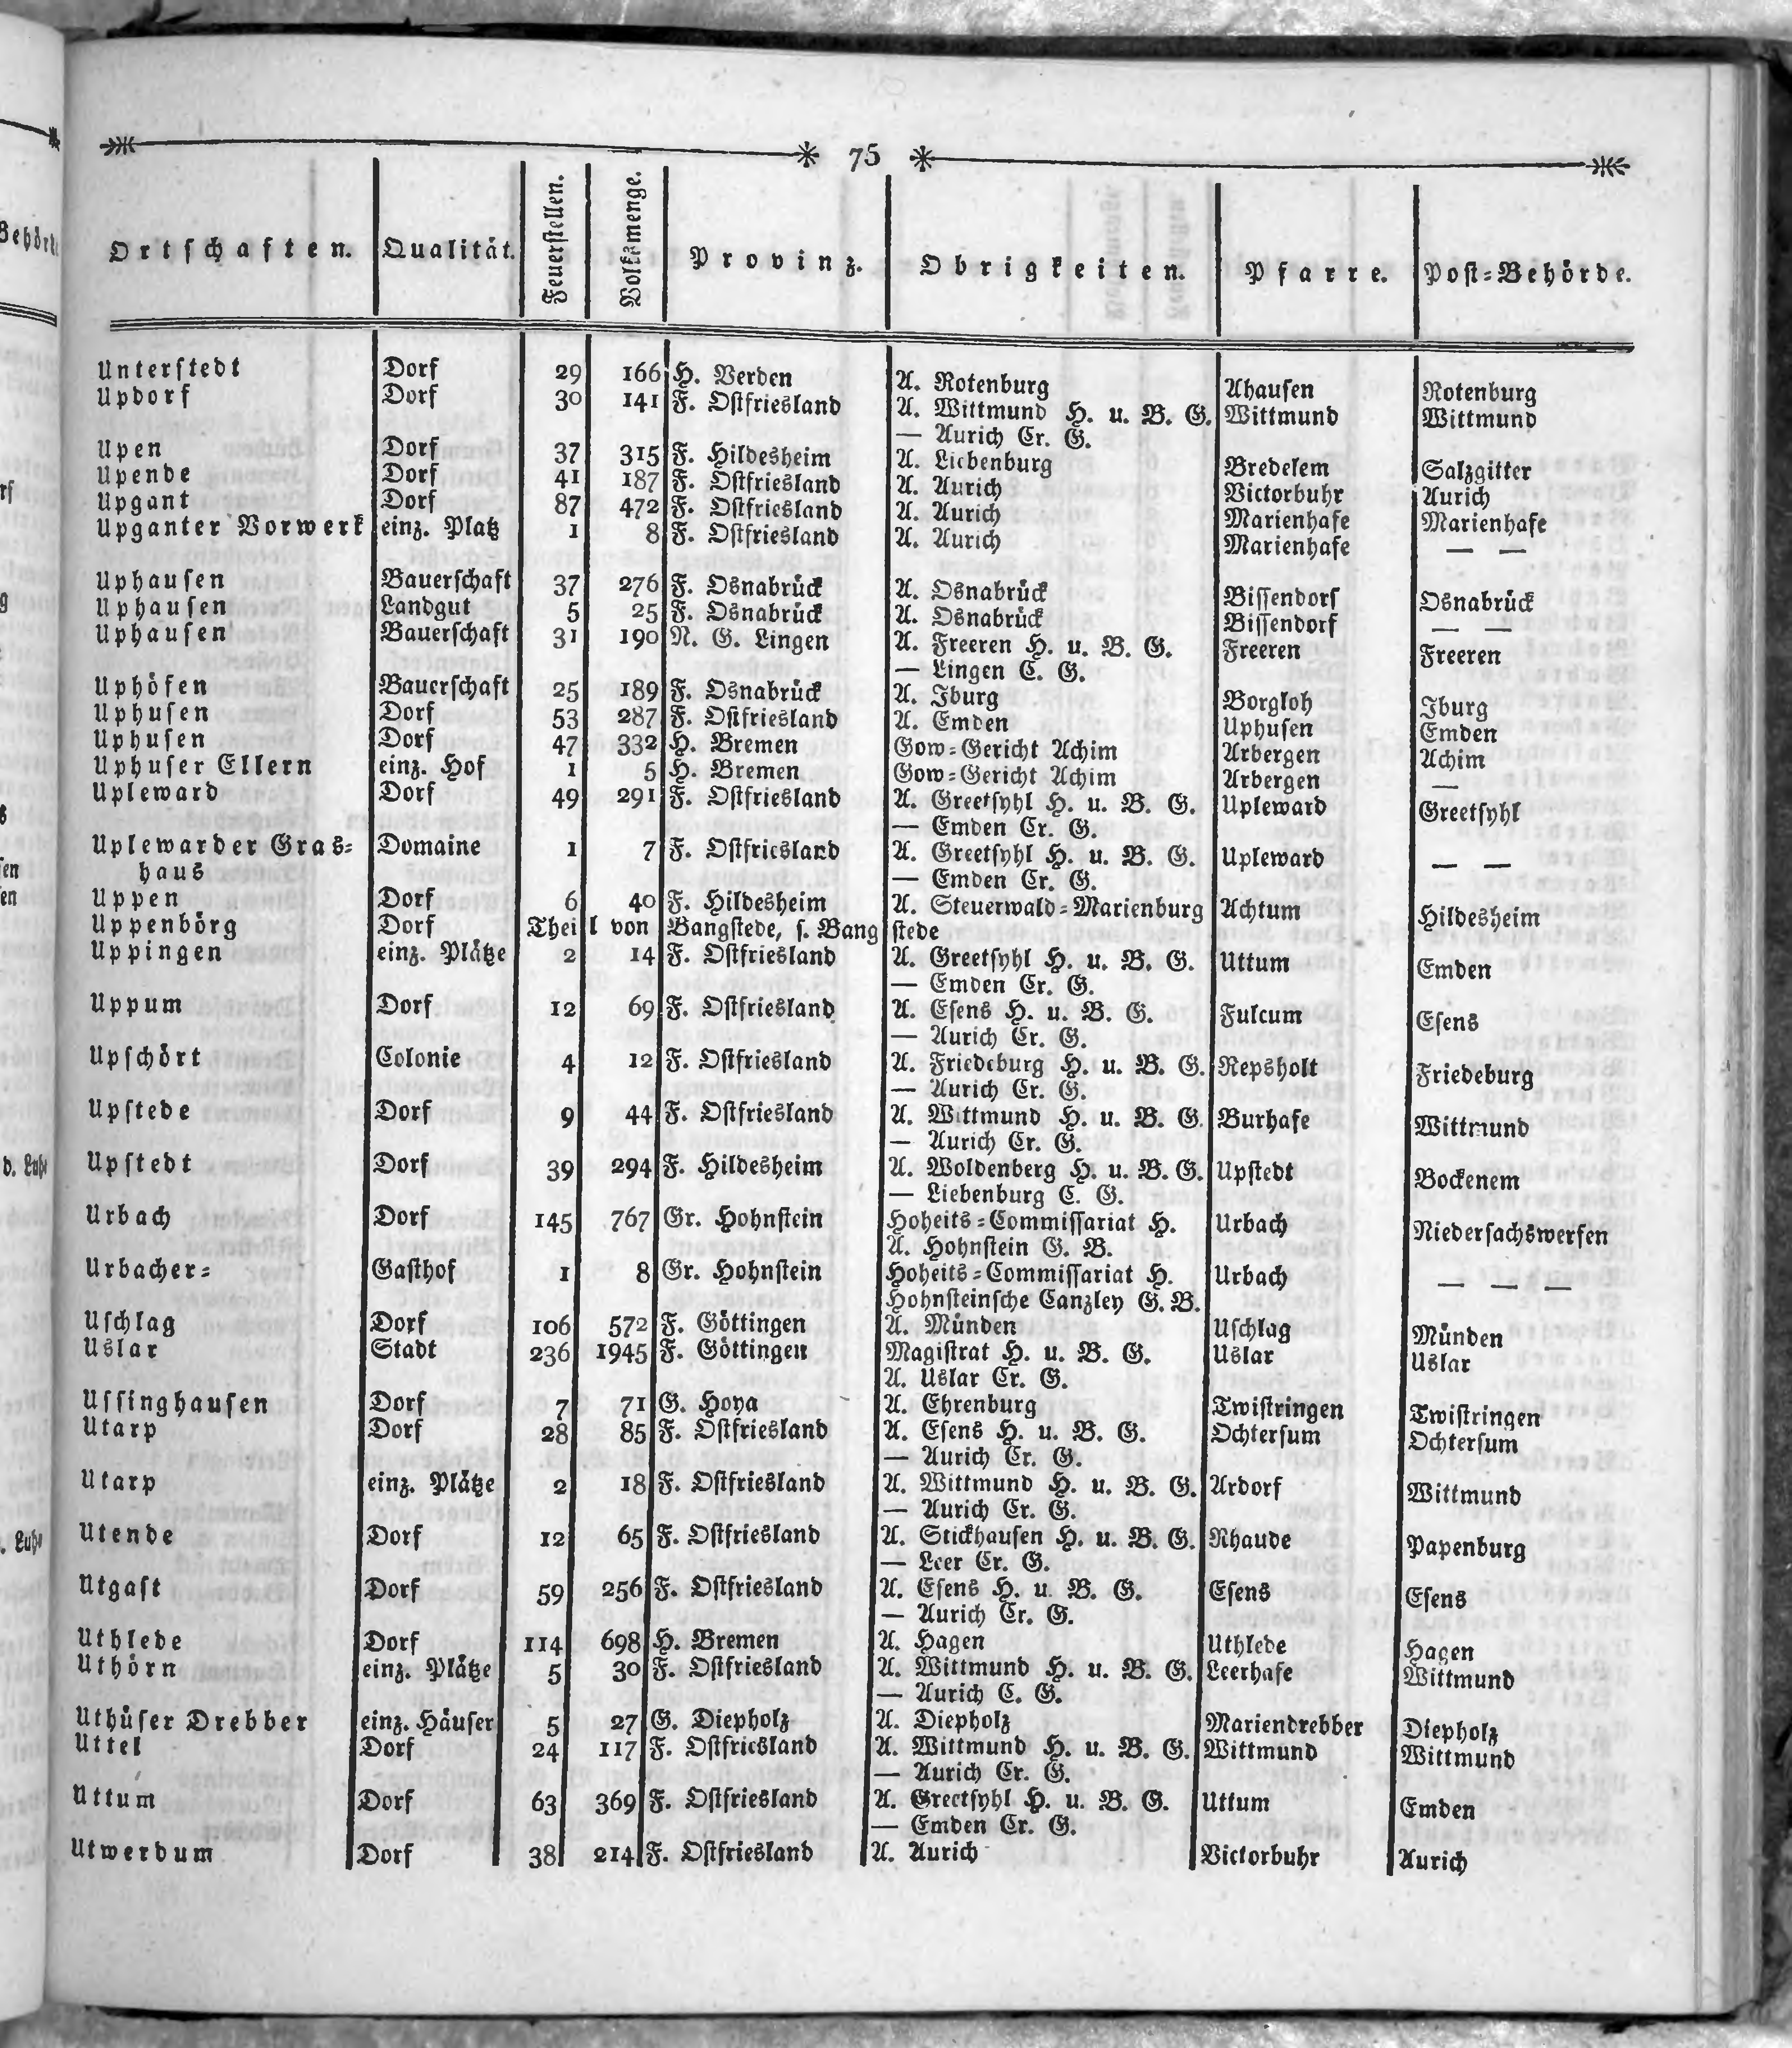 75
Ortschaften. Qualität. Feuerstellen. Volksmenge. Provinz. Obrigkeiten. Pfarre. Post=Behörde.
Unterstedt Dorf 29 166 H. Verden A. Rotenburg Ahausen Rotenburg
Updorf Dorf 30 141 F. Ostfriesland A. Wittmund H. u. B. G. Wittmund Wittmund
— Aurich Cr. G.
Upen Dorf 37 315 F. Hildesheim A. Liebenburg Bredelem Salzgitter
Upende Dorf 41 187 F. Ostfriesland A. Aurich Victorbuhr Aurich
Upgant Dorf 87 472 F. Ostfriesland A. Aurich Marienhafe Marienhafe
Upganter Vorwerk einz. Platz 1 8 F. Ostfriesland A. Aurich Marienhafe — —
Uphausen Bauerschaft 37 276 F. Osnabrück A. Osnabrück Bissendorf Osnabrück
Uphausen Landgut 5 25 F. Osnabrück A. Osnabrück Bissendorf — —
Uphausen Bauerschaft 31 190 N. G. Lingen A. Freeren H. u. B. G. Freeren Freeren
— Lingen C. G.
Uphöfen Bauerschaft 25 189 F. Osnabrück A. Iburg Borgloh Iburg
Uphusen Dorf 53 287 F. Ostfriesland A. Emden Uphusen Emden
Uphusen Dorf 47 332 H. Bremen Gow=Gericht Achim Arbergen Achim
Uphuser Ellern einz. Hof 1 5 H. Bremen Gow=Gericht Achim Arbergen —
Upleward Dorf 49 291 F. Ostfriesland A. Greetsyhl H. u. B. G. Upleward Greetsyhl
— Emden Cr. G.
Uplewarder Gras= Domaine 1 7 F. Ostfriesland A. Greetsyhl H. u. B. G. Upleward — —
haus — Emden Cr. G.
Uppen Dorf 6 40 F. Hildesheim A. Steuerwald=Marienburg Achtum Hildesheim
Uppenbörg Dorf Theil von Bangstede, s. Bangstede
Uppingen einz. Plätze 2 14 F. Ostfriesland A. Greetsyhl H. u. B. G. Uttum Emden
— Emden Cr. G.
Uppum Dorf 12 69 F. Ostfriesland A. Esens H. u. B. G. Fulcum Esens
— Aurich Cr. G.
Upschört Colonie 4 12 F. Ostfriesland A. Friedeburg H. u. B. G. Repsholt Friedeburg
— Aurich Cr. G.
Upstede Dorf 9 44 F. Ostfriesland A. Wittmund H. u. B. G Burhafe Wittmund
— Aurich Cr. G.
Upstedt Dorf 39 294 F. Hildesheim A. Woldenberg H. u. B. G. Upstedt Bockenem
— Liebenburg C. G.
Urbach Dorf 145 767 Gr. Hohnstein Hoheits=Commissariat H. Urbach Niedersachswerfen
A. Hohnstein G. B.
Urbacher= Gasthof 1 8 Gr. Hohnstein Hoheits=Commissariat H. Urbach — — —
Hohnsteinsche Canzley G. B.
Uschlag Dorf 106 572 F. Göttingen A. Münden Uschlag Münden
Uslar Stadt 236 1945 F. Göttingen Magistrat H. u. B. G. Uslar Uslar
A. Uslar Cr. G.
Ussinghausen Dorf 7 71 G. Hoya A. Ehrenburg Twistringen Twistringen
Utarp Dorf 28 85 F. Ostfriesland A. Esens H. u. B. G. Ochtersum Ochtersum
— Aurich Cr. G.
Utarp einz. Plätze 2 18 F. Ostfriesland A. Wittmund H. u. B. G. Ardorf Wittmund
— Aurich Cr. G.
Utende Dorf 12 65 F. Ostfriesland A. Stickhausen H. u. B. G. Rhaude Papenburg
— Leer Cr. G.
Utgast Dorf 59 256 F. Ostfriesland A. Esens H. u. B. G. Esens Esens
— Aurich Cr. G.
Uthlede Dorf 114 698 H. Bremen A. Hagen Uthlede Hagen
Uthörn einz. Plätze 5 30 F. Ostfriesland A. Wittmund H. u. B. G. Leerhafe Wittmund
— Aurich C. G.
Uthüser Drebber einz. Häuser 5 27 G. Diepholz A. Diepholz Mariendrebber Diepholz
Uttel Dorf 24 117 F. Ostfriesland A. Wittmund H. u. B. G. Wittmund Wittmund
— Aurich Cr. G.
Uttum Dorf 63 369 F. Ostfriesland A. Greetsyhl H. u. B. G. Uttum Emden
— Emden Cr. G.
Utwerdum Dorf 38 214 F. Ostfriesland A. Aurich Victorbuhr Aurich